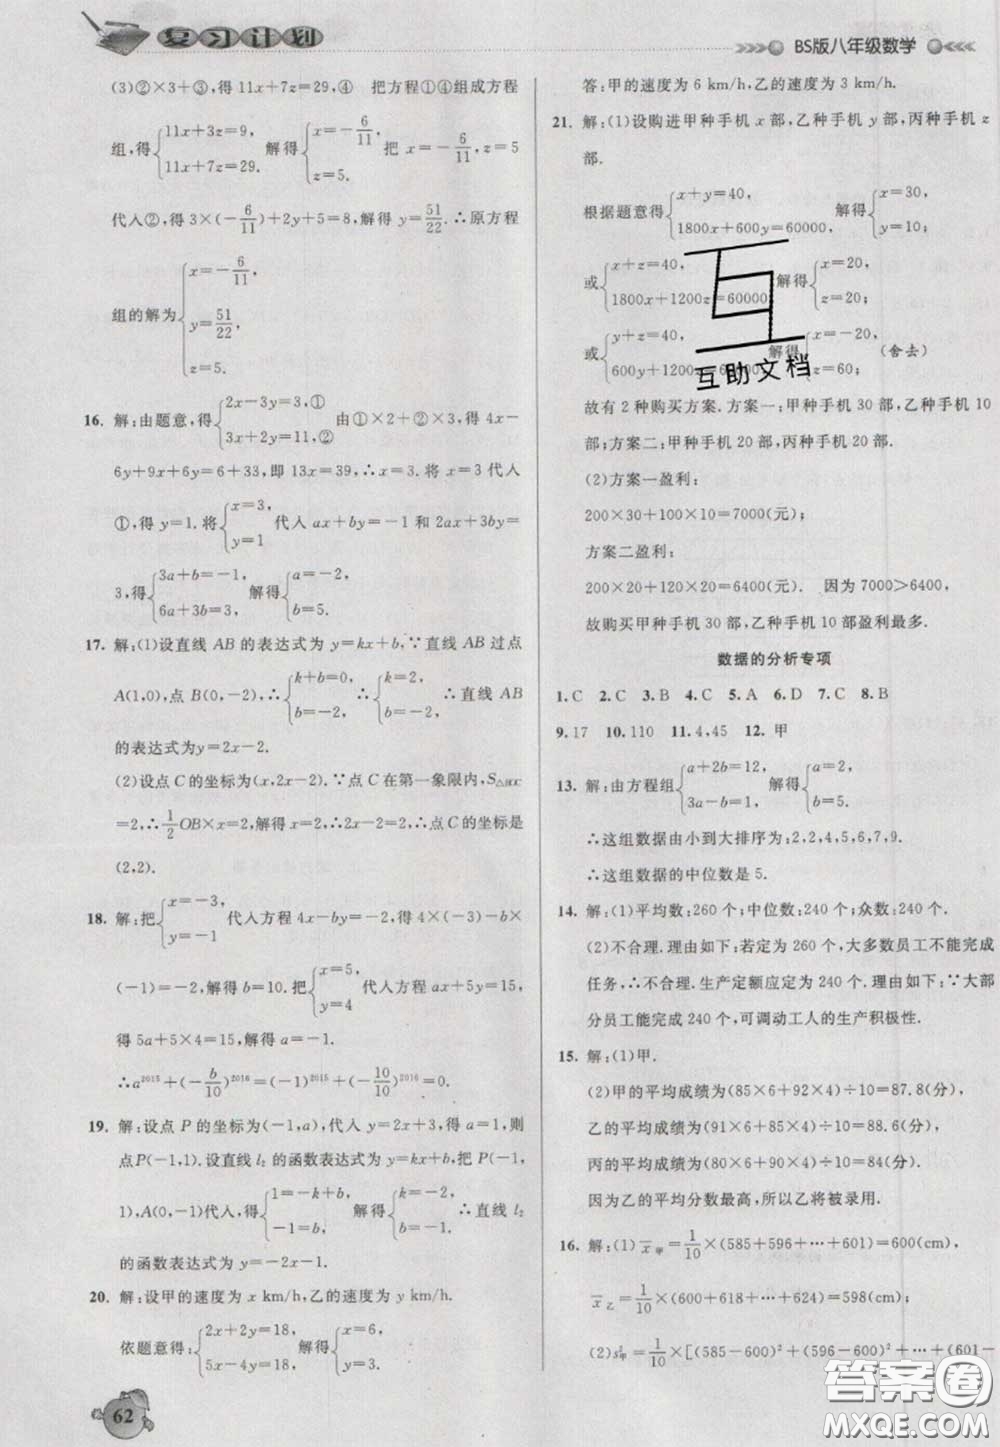 复习计划
BS版八年级数学
(3)②×3+③,得 11x+7z=29,④ 把方程①④组成方程
组,得{11x+3z=9, 11x+7z=29. 解得{x=-6/11, z=5. 把 x=-6/11,z=5
代入②,得 3×(-6/11)+2y+5=8,解得 y=51/22.∴原方程
组的解为{x=-6/11, y=51/22, z=5.
16. 解:由题意,得{2x-3y=3,① 3x+2y=11,② 由①×2+②×3,得 4x-
6y+9x+6y=6+33,即 13x=39,∴x=3.将 x=3 代入
①,得 y=1.将{x=3, y=1 代入 ax+by=-1 和 2ax+3by=
3,得{3a+b=-1, 6a+3b=3, 解得{a=-2, b=5.
17. 解:(1)设直线 AB 的表达式为 y=kx+b,∵直线 AB 过点
A(1,0),点 B(0,-2),∴{k+b=0, b=-2, ∴{k=2, b=-2, ∴直线 AB
的表达式为y=2x-2.
(2)设点 C 的坐标为(x,2x-2).∵点 C 在第一象限内,S△BOC
=2,∴1/2OB×x=2,解得x=2,∴2x-2=2,∴点 C 的坐标是
(2,2).
18. 解:把{x=-3, y=-1 代入方程 4x-by=-2,得 4×(-3)-b×
(-1)=-2,解得 b=10.把{x=5, y=4 代入方程 ax+5y=15,
得 5a+5×4=15,解得 a=-1.
∴a²⁰¹⁵+(-b/10)²⁰¹⁶=(-1)²⁰¹⁵+(-10/10)²⁰¹⁶=0.
19. 解:设点 P 的坐标为(-1,a),代入 y=2x+3,得 a=1,则
点P(-1,1).设直线 l₂ 的函数表达式为 y=kx+b,把 P(-1,
1),A(0,-1)代入,得{1=-k+b, -1=b, 解得{k=-2, b=-1, ∴直线 l₂
的函数表达式为 y=-2x-1.
20. 解:设甲的速度为 x km/h,乙的速度为 y km/h.
依题意得:{2x+2y=18, 5x-4y=18, 解得{x=6, y=3.
62
答:甲的速度为 6 km/h,乙的速度为 3 km/h.
21. 解:(1)设购进甲种手机 x 部,乙种手机 y 部,丙种手机 z
部.
根据题意得{x+y=40, 1800x+600y=60000, 解得{x=30, y=10;
或{x+z=40, 1800x+1200z=60000 解得{x=20, z=20;
或{y+z=40, 600y+1200z=60000 解得{x=-20, z=60; (舍去)
互助文档
故有 2 种购买方案.方案一:甲种手机 30 部,乙种手机 10
部;方案二:甲种手机 20 部,丙种手机 20 部.
(2)方案一盈利:
200×30+100×10=7000(元);
方案二盈利:
200×20+120×20=6400(元). 因为 7000>6400,
故购买甲种手机 30 部,乙种手机 10 部盈利最多.
数据的分析专项
1.C 2.C 3.B 4.C 5.A 6.D 7.C 8.B
9.17 10.110 11.4,45 12.甲
13. 解:由方程组{a+2b=12, 3a-b=1, 解得{a=2, b=5.
∴这组数据由小到大排序为:2,2,4,5,6,7,9.
∴这组数据的中位数是 5.
14. 解:(1)平均数:260 个;中位数:240 个;众数:240 个.
(2)不合理.理由如下:若定为 260 个,大多数员工不能完成
任务,∴不合理.生产定额应定为 240 个.理由如下:∵大部
分员工能完成 240 个,可调动工人的生产积极性.
15. 解:(1)甲.
(2)甲的平均成绩为(85×6+92×4)÷10=87.8(分),
乙的平均成绩为(91×6+85×4)÷10=88.6(分),
丙的平均成绩为(80×6+90×4)÷10=84(分),
因为乙的平均分数最高,所以乙将被录用.
16. 解:(1)x̄甲=1/10×(585+596+…+601)=600(cm),
x̄乙=1/10×(600+618+…+624)=598(cm);
(2)s²甲=1/10×[(585-600)²+(596-600)²+…+(601-
答案圈
MXQE.COM